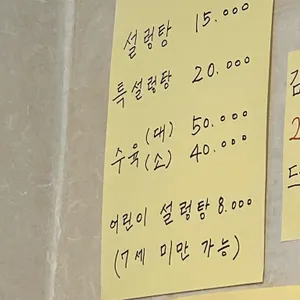 설렁탕 15.000
특설렁탕 20.000
수육(대) 50.000
(소) 40.000
어린이 설렁탕 8.000
(7세 미만 가능)
김
2